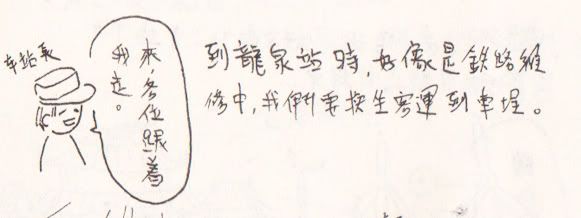 車站長
來,各位跟着
我走。
到龍泉站時,好像是鉄路維
修中,我們要換坐客運到車埕。